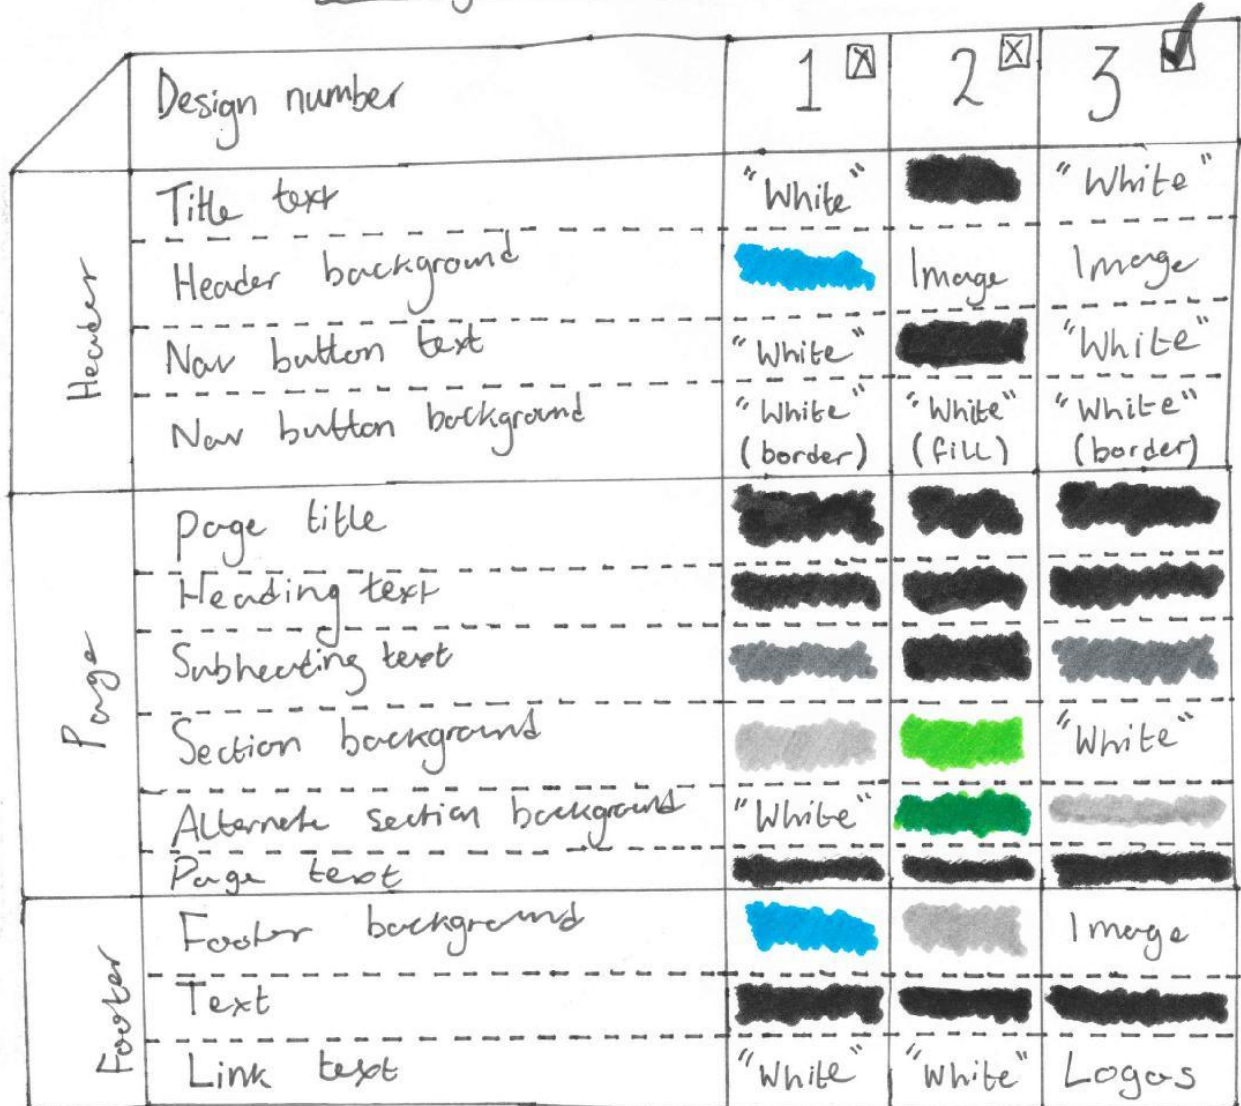 Design number 1 2 3
Header
Title text "White" "White"
Header background Image Image
Nav button text "White" "White"
Nav button background "White" (border) "White" (fill) "White" (border)
Page
Page title
Heading text
Subheading text
Section background "White"
Alternate section background "White"
Page text
Footer
Footer background Image
Text
Link text "White" "White" Logos